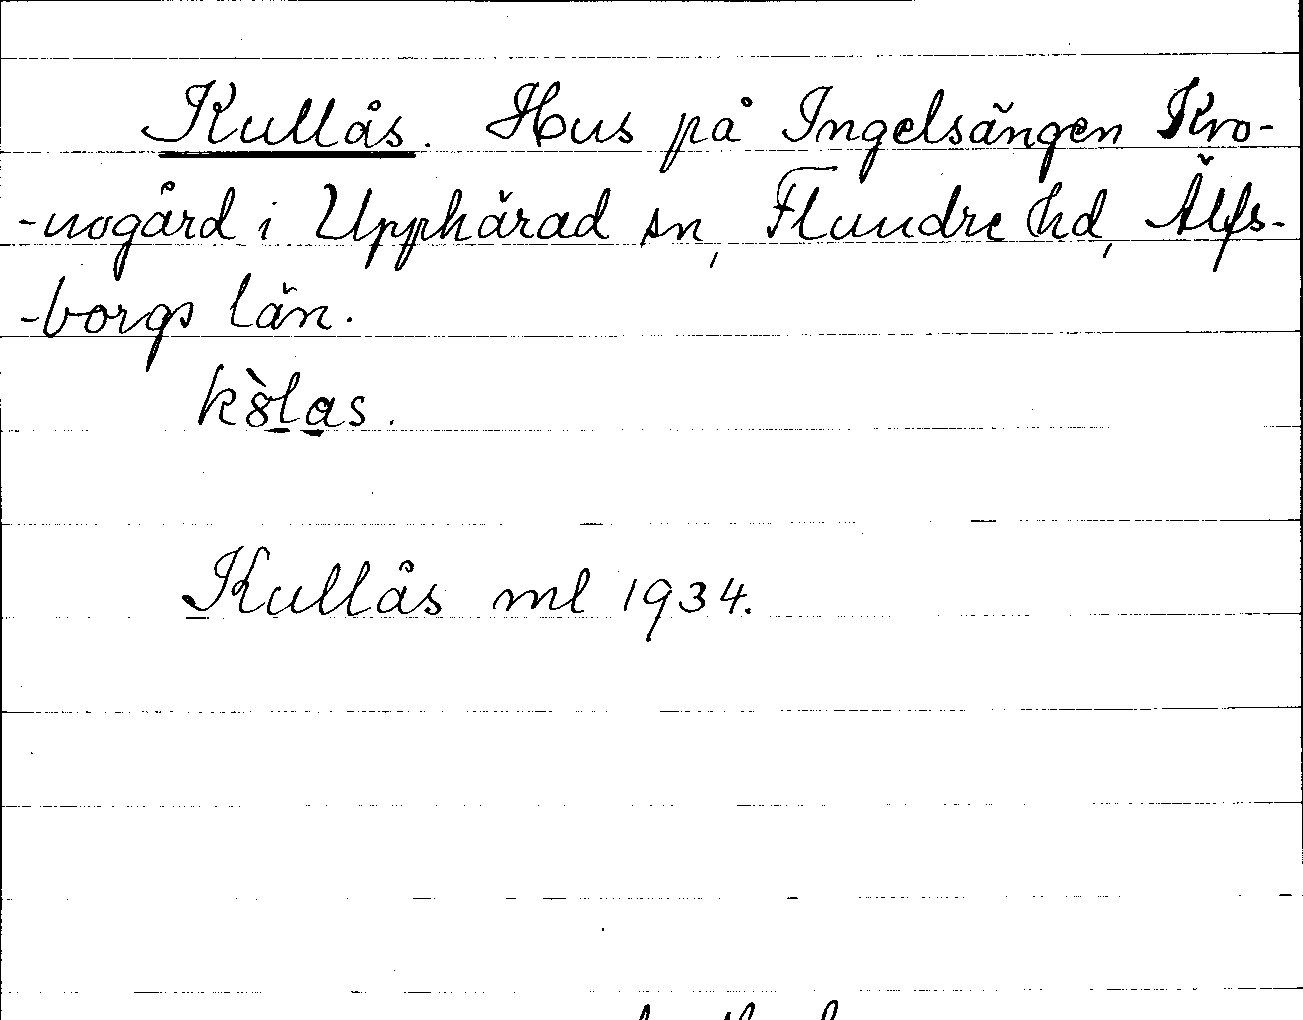 Kullås. Hus på Ingelsängen Kro-
-nogård i Upphärad sn, Flundre hd, Älfs-
-borgs län.
kòlas.
Kullås ml 1934.